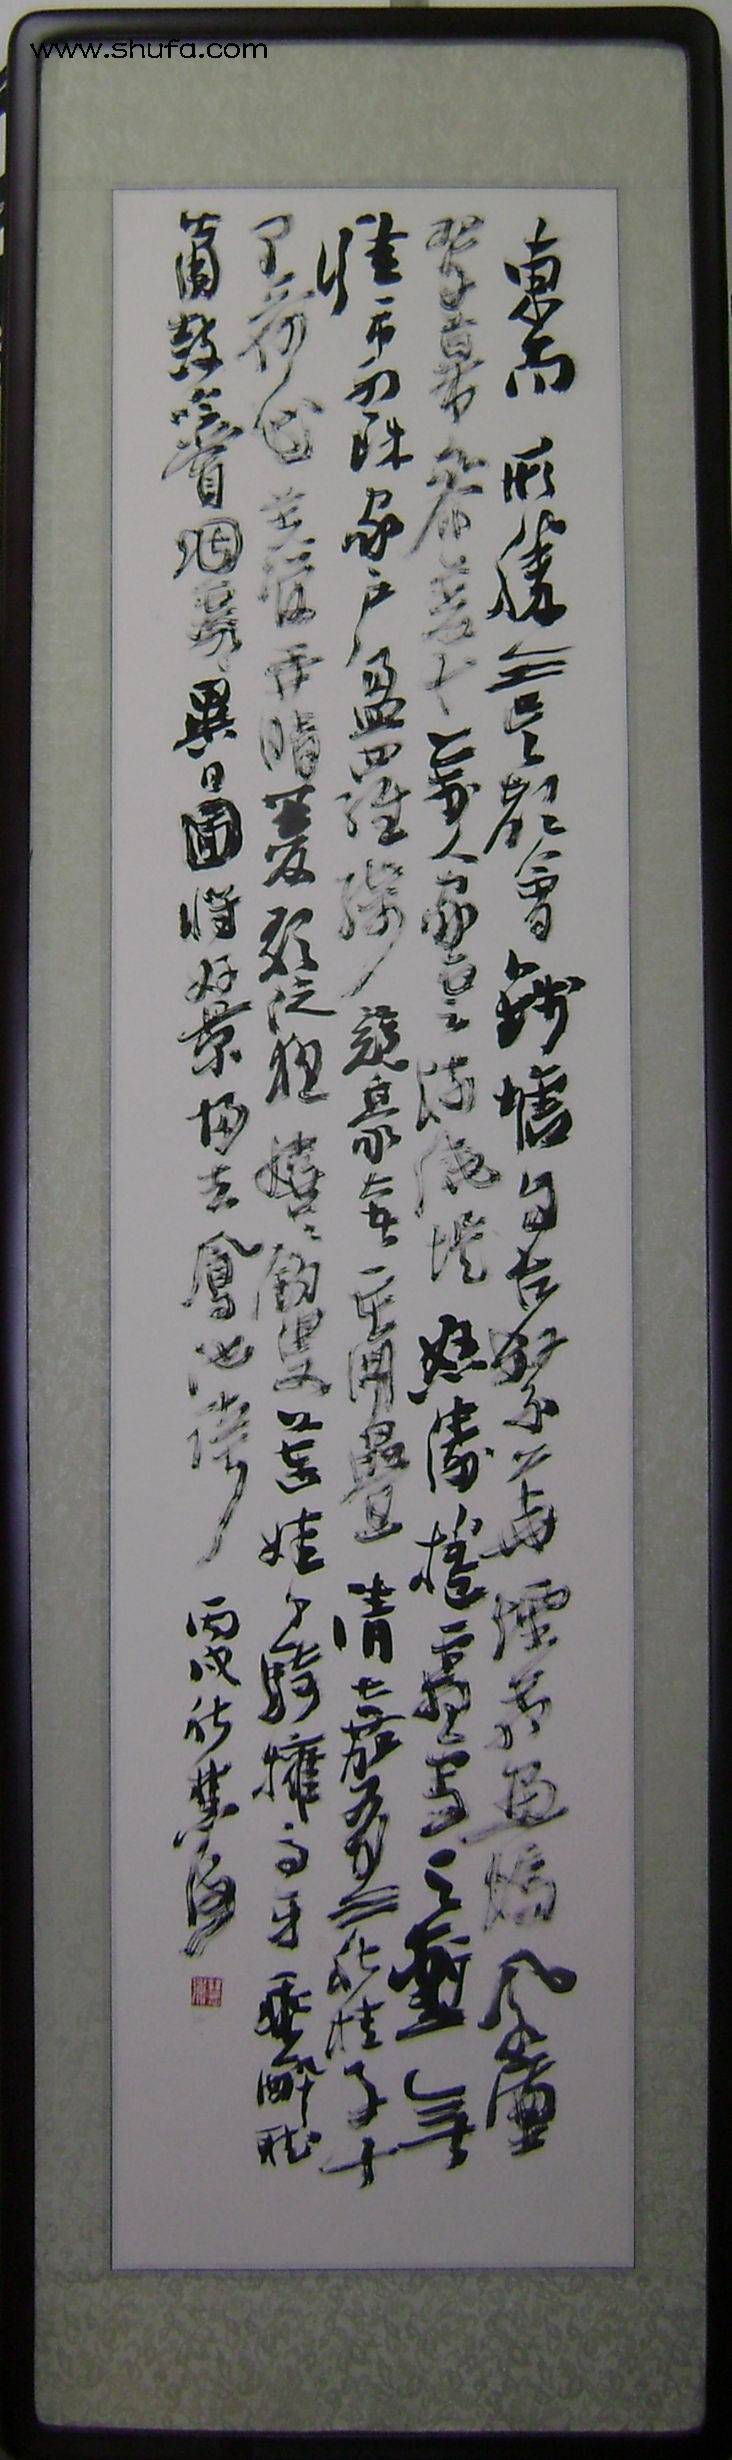 www.shufa.com
東南形勝三吳都會錢塘自古繁華煙柳畫橋風簾
翠幕參差十萬人家雲堤怒濤捲霜雪天塹無
涯市列珠家户盈羅綺競豪奢重湖疊清嘉有三秋桂子十
里荷花羌管弄晴菱歌泛夜嬉嬉釣叟蓮娃千騎擁高牙乘醉聽
簫鼓吟賞烟霞異日圖將好景歸去鳳池誇丙戌秋